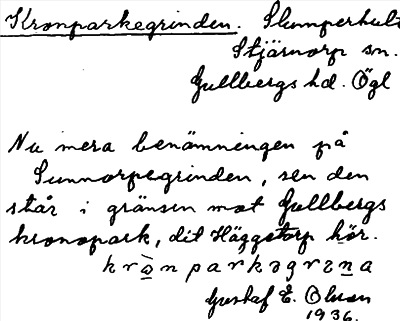 Kronparkegrinden. Slumperhult
Stjärnorp sn.
Gullbergs hd. Ögl
Nu mera benämningen på
Sunnorpegrinden, sen den
står i gränsen mot Gullbergs
kronopark, dit Häggstorp hör.
Gustaf E. Olsson
1936.